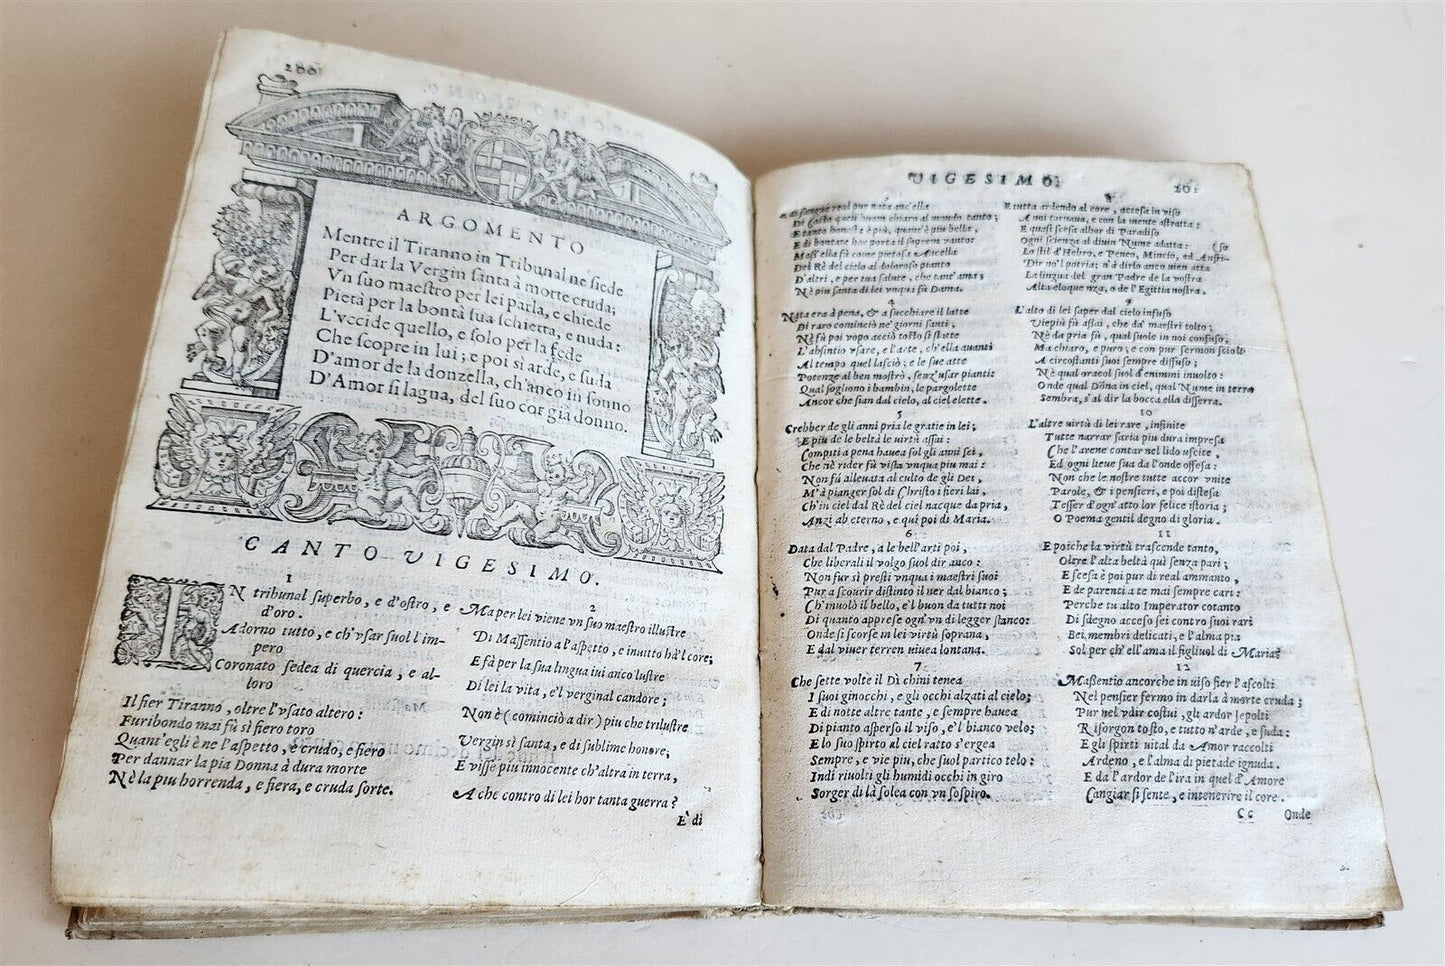 200
ARGOMENTO
Mentre il Tiranno in Tribunal ne siede
Per dar la Vergin santa à morte cruda;
Vn suo maestro per lei parla, e chiede
Pietà per la bontà sua schietta, e nuda:
L'vccide quello, e solo per la fede
Che scopre in lui; e poi sì arde, e suda
D'amor de la donzella, ch'anco in sonno
D'Amor si lagna, del suo cor già donno.
CANTO VIGESIMO.
1
IN tribunal superbo, e d'ostro, e
d'oro.
Adorno tutto, e ch'vsar suol l'im-
pero
Coronato sedea di quercia, e al-
loro
Il fier Tiranno, oltre l'vsato altero:
Furibondo mai fù sì fiero toro
Quant'egli è ne l'aspetto, e crudo, e fiero
Per dannar la pia Donna à dura morte
Nè la piu horrenda, e fiera, e cruda sorte.
2
Ma per lei viene vn suo maestro illustre
Di Massentio a l'aspetto, e inuitto hà'l core;
E fà per la sua lingua iui anco lustre
Di lei la vita, e'l verginal candore;
Non è (cominciò a dir) piu che trilustre
Vergin sì santa, e di sublime honore;
E visse piu innocente ch'altra in terra,
A che contro di lei hor tanta guerra?
E di
VIGESIMO.
201
real pur nata anc'ella
Di Costo quest huom chiaro al mondo tanto;
E tanto honesta è più, quant'è piu bella,
E di bontate hor porta il soprem vantor
Moss'ella fù come pietosa Ancella
Del Rè del cielo al doloroso pianto
D'altri, e per tua salute, che tant'ama;
Nè piu santa di lei vnqua fù Dama.
4
Nata era à pena, & a succhiare il latte
Di raro cominciò ne' giorni santi;
Nè fù poi vopo acciò tosto si statte
L'absintio vsare, e l'arte, ch'ella auanti
Al tempo quel lasciò; e le sue atte
Potenze al ben mostrò, senz'usar pianti:
Qual sogliono i bambin, le pargolette
Ancor che sian dal cielo, al ciel elette.
5
Crebber de gli anni pria le gratie in lei;
E piu de le beltà le virtù assai:
Compiti a pena hauea sol gli anni sei,
Che nè rider fù vista vnqua piu mai:
Non fù alleuata al culto de gli Dei,
M'à pianger sol di Christo i fieri lai,
Ch'in ciel dal Rè del ciel nacque da pria,
Anzi ab eterno, e qui poi di Maria.
6
Data dal Padre, a le bell'arti poi,
Che liberali il volgo suol dir anco:
Non fur sì presti vnqua i maestri suoi
Pur a scourir distinto il ner dal bianco;
Ch'inuolò il bello, e'l buon da tutti noi
Di quanto apprese ogn'vn di legger stanco:
Onde si scorse in lei virtù soprana,
E dal viuer terren viuea lontana.
7
Che sette volte il Dì chini tenea
I suoi ginocchi, e gli occhi alzati al cielo;
E di notte altre tante, e sempre hauea
Di pianto asperso il viso, e'l bianco velo;
E lo suo spirto al ciel ratto s'ergea
Sempre, e vie piu, che suol partico telo:
Indi riuolti gli humidi occhi in giro
Sorger di là solea con vn sospiro.
8
E tutta ardendo al core, accesa in viso
A noi tornaua, e con la mente astratta:
E quasi scesa alhor di Paradiso
Ogni scienza al diuin Nume adatta: (so
Lo stil d'Hebro, e Peneo, Mincio, ed Anfri-
Dir no'l potria; n'à dirlo anco vien atta
La lingua del gran Padre de la nostra
Alta eloquenza, o de l'Egittia nostra.
9
L'alto di lei saper dal cielo infuso
Viepiù fù assai, che da' maestri tolto;
Nè da pria fù, qual suole in noi confuso;
Ma chiaro, e puro; e con pur sermon sciolto
A circostanti suoi sempre diffuso;
Nè qual oracol suol d'enimmi inuolto:
Onde qual Dōna in ciel, qual Nume in terra
Sembra, s'al dir la bocca ella disserra.
10
L'altre virtù di lei rare, infinite
Tutte narrar saria piu dura impresa
Che l'arene contar nel lido uscite,
Ed ogni lieue sua da l'onde offesa:
Non che le nostre tutte accor vnite
Parole, & i pensieri, e poi distesa
Tesser d'ogn'atto lor felice istoria;
O Poema gentil degno di gloria.
11
E poiche la virtù trascende tanto,
Oltre l'alta beltà quì senza pari;
E scesa è poi pur di real ammanto,
E de parenti a te mai sempre cari:
Perche tu alto Imperator cotanto
Di sdegno acceso sei contro suoi rari
Bei membri delicati, e l'alma pia
Sol per ch'ell'ama il figliuol di Maria?
12
Massentio ancorche in uiso fier l'ascolti
Nel pensier fermo in darla à morte cruda;
Pur nel vdir costui, gli ardor sepolti
Risorgon tosto, e tutto n'arde, e suda:
E gli spirti vital da Amor raccolti
Ardeno, e l'alma di pietade ignuda.
E da l'ardor de l'ira in quel d'Amore
Cangiar si sente, e intenerire il core.
Cc Onde